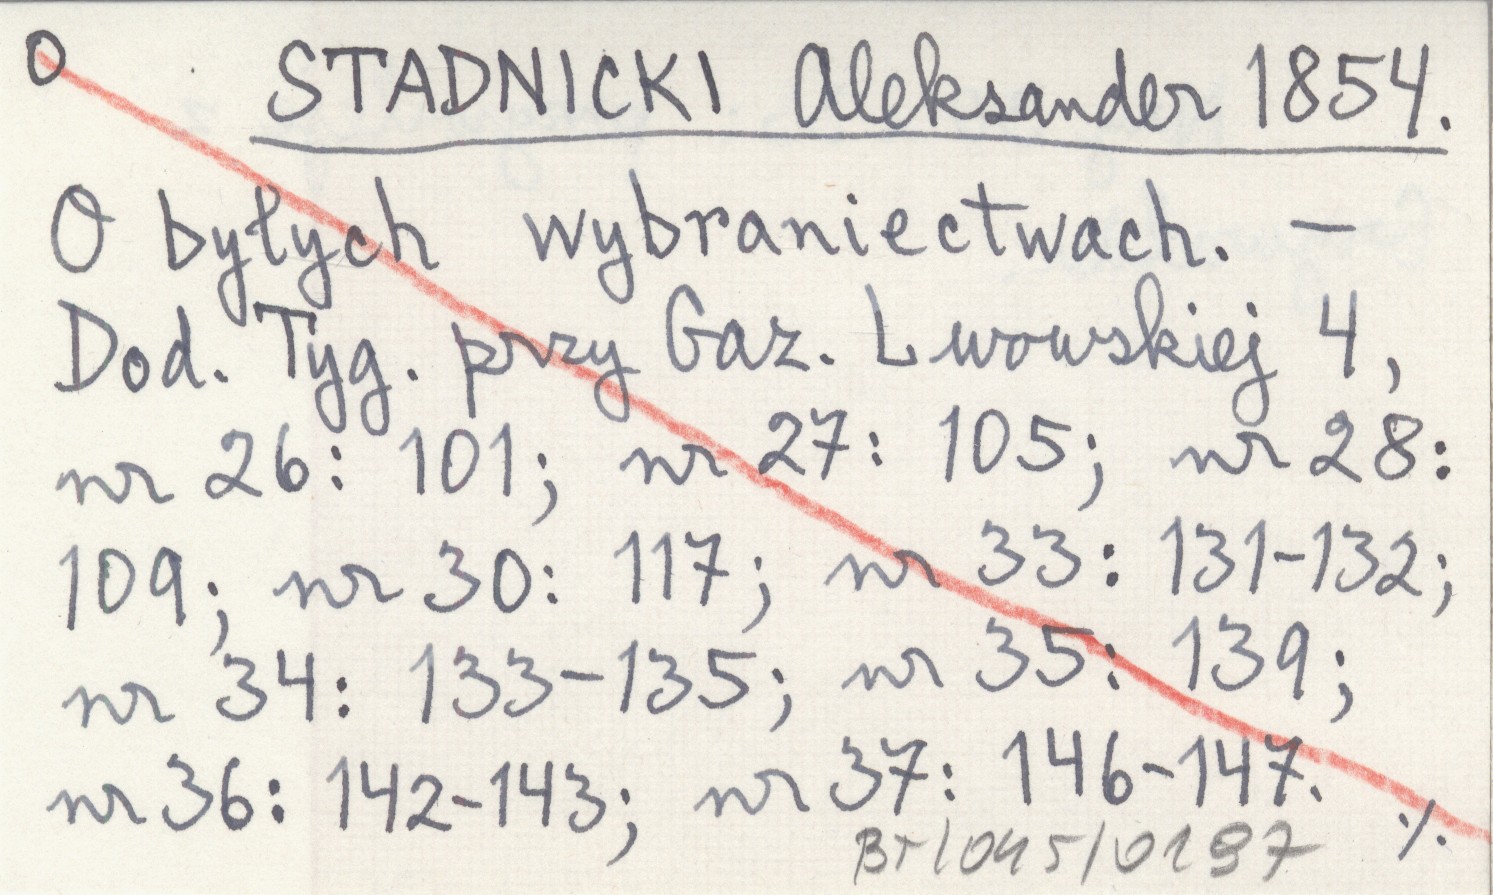 O STADNICKI Aleksander 1854.
O byłych wybraniectwach. —
Dod. Tyg. przy Gaz. Lwowskiej 4,
nr 26: 101; nr 27: 105; nr 28:
109; nr 30: 117; nr 33: 131-132;
nr 34: 133-135; nr 35: 139;
nr 36: 142-143; nr 37: 146-147.
./.
BT/045/0197